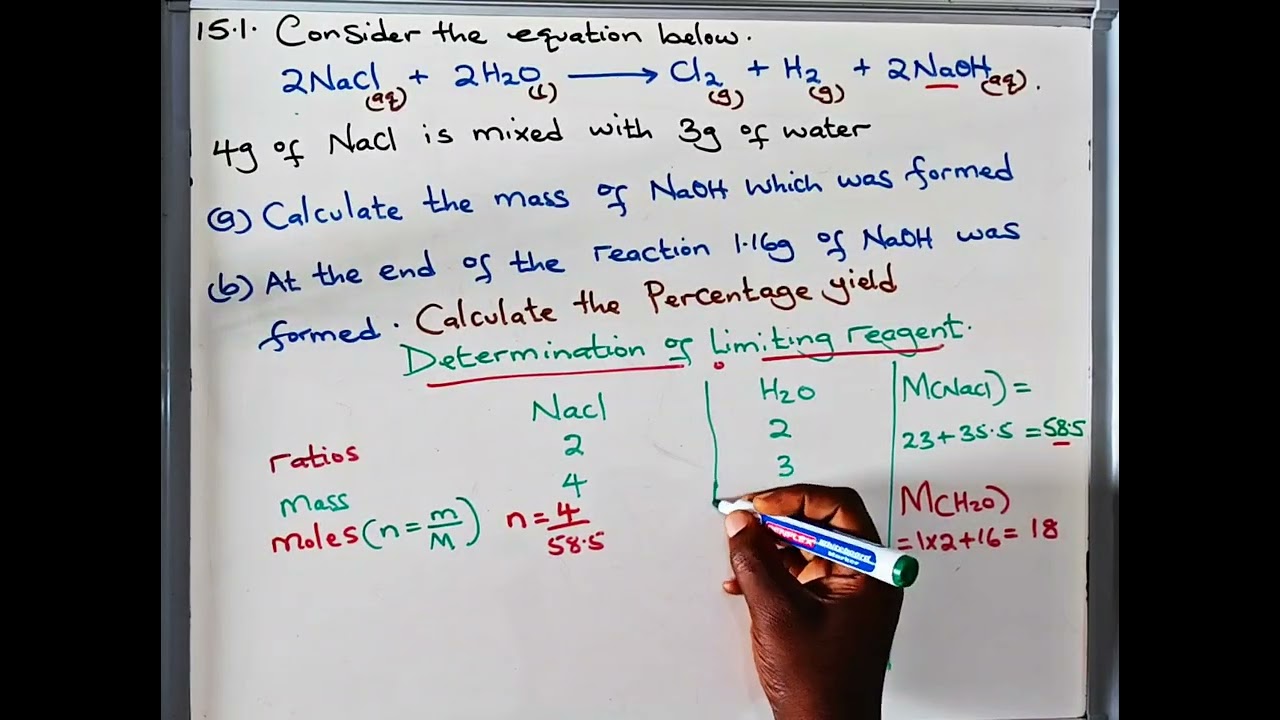 15.1. Consider the equation below.
2NaCl(aq) + 2H2O(l) → Cl2(g) + H2(g) + 2NaOH(aq).
4g of NaCl is mixed with 3g of water
(a) Calculate the mass of NaOH which was formed
(b) At the end of the reaction 1.16g of NaOH was
formed. Calculate the Percentage yield
Determination of Limiting reagent.
NaCl H2O
ratios 2 2
mass 4 3
moles (n = m/M) n = 4/58.5
M(NaCl) =
23 + 35.5 = 58.5
M(H2O)
= 1x2 + 16 = 18
Whiteboard
Marker